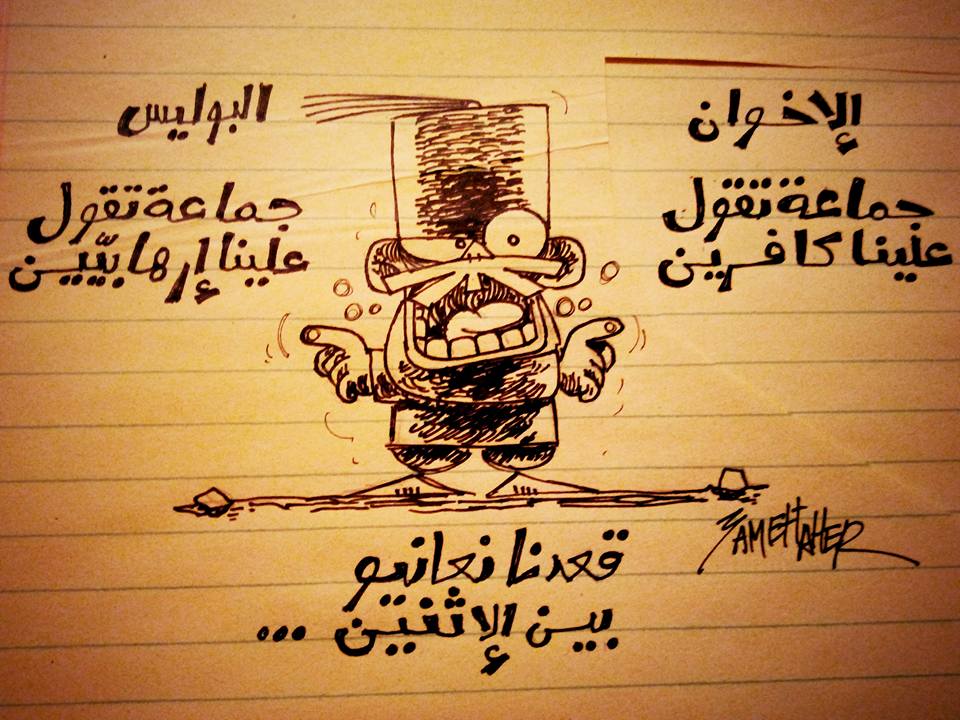 الإخوان
جماعة تقول
علينا كافرين
البوليس
جماعة تقول
علينا إرهابيّين
قعدنا نعانيو
بين الإثنين ...